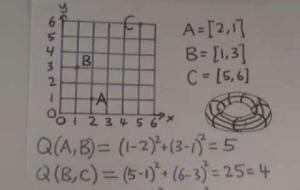 y
6 C A=[2,1]
5
4 B=[1,3]
3 B
2 C=[5,6]
1 A
0 x
0 1 2 3 4 5 6
Q(A,B)= (1-2)²+(3-1)²=5
Q(B,C)= (5-1)²+(6-3)²=25=4